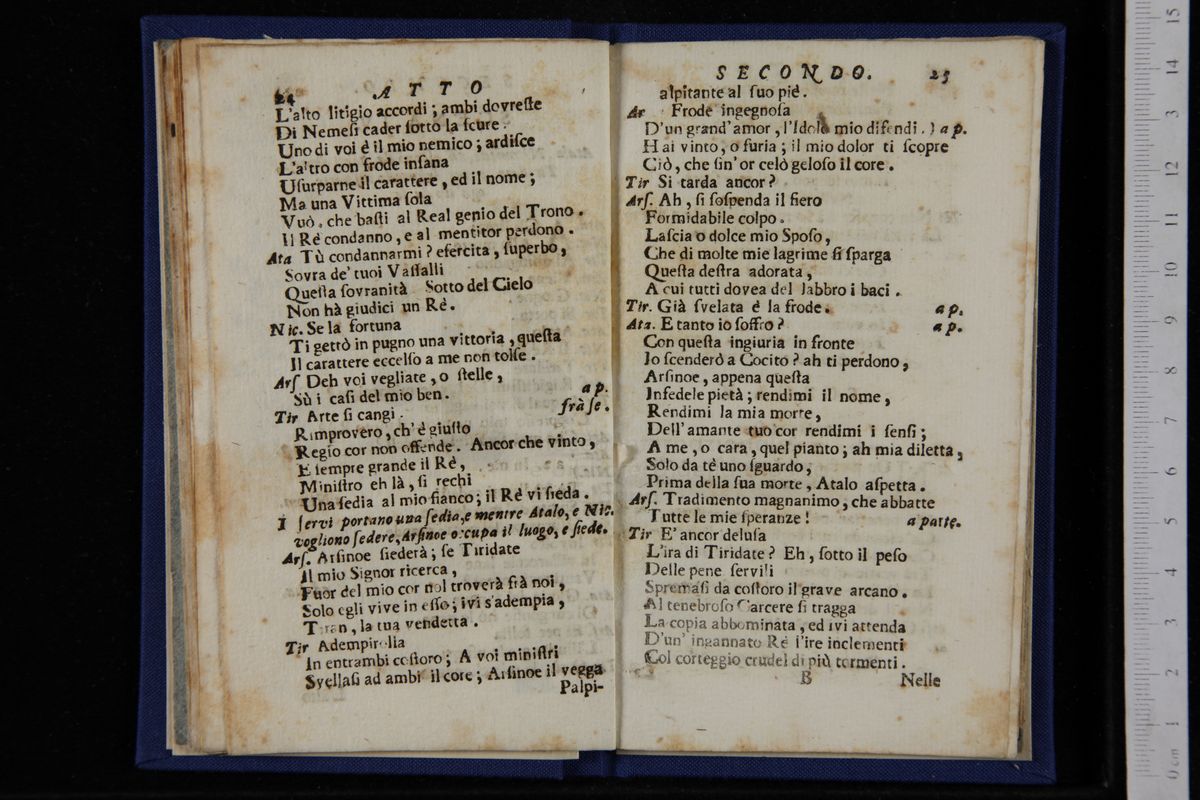 24 ATTO
L'alto litigio accordi; ambi dovreste
Di Nemesi cader sotto la scure.
Uno di voi è il mio nemico; ardisce
L'altro con frode insana
Usurparne il carattere, ed il nome;
Ma una Vittima sola
Vuò, che basti al Real genio del Trono.
Il Rè condanno, e al mentitor perdono.
Ata Tù condannarmi? esercita, superbo,
Sovra de' tuoi Vassalli
Questa sovranità Sotto del Cielo
Non hà giudici un Rè.
Nic. Se la fortuna
Ti gettò in pugno una vittoria, questa
Il carattere eccelso a me non tolse.
Ars Deh voi vegliate, o stelle,
Sù i casi del mio ben. a p.
Tir Arte si cangi. frà se.
Rimprovero, ch'è giusto
Regio cor non offende. Ancor che vinto,
E sempre grande il Rè,
Ministro eh là, si rechi
Una sedia al mio fianco; il Rè vi sieda.
I servi portano una sedia, e mentre Atalo, e Nic.
vogliono sedere, Arsinoe occupa il luogo, e siede.
Ars. Arsinoe siederà; se Tiridate
Il mio Signor ricerca,
Fuor del mio cor nol troverà frà noi,
Solo egli vive in esso; ivi s'adempia,
Tiran, la tua vendetta.
Tir Adempirolla
In entrambi costoro; A voi ministri
Svellasi ad ambi il core; Arsinoe il vegga
Palpi-
SECONDO. 25
alpitante al suo piè.
Ar Frode ingegnosa
D'un grand'amor, l'Idolo mio difendi.) a p.
Hai vinto, o furia; il mio dolor ti scopre
Ciò, che sin'or celò geloso il core.
Tir Si tarda ancor?
Ars. Ah, si sospenda il fiero
Formidabile colpo.
Lascia o dolce mio Sposo,
Che di molte mie lagrime si sparga
Questa destra adorata,
A cui tutti dovea del labbro i baci.
Tir. Già svelata è la frode. a p.
Ata. E tanto io soffro? a p.
Con questa ingiuria in fronte
Io scenderò a Cocito? ah ti perdono,
Arsinoe, appena questa
Infedele pietà; rendimi il nome,
Rendimi la mia morte,
Dell'amante tuo cor rendimi i sensi;
A me, o cara, quel pianto; ah mia diletta,
Solo da tè uno sguardo,
Prima della sua morte, Atalo aspetta.
Ars. Tradimento magnanimo, che abbatte
Tutte le mie speranze! a parte.
Tir E' ancor delusa
L'ira di Tiridate? Eh, sotto il peso
Delle pene servili
Spremasi da costoro il grave arcano.
Al tenebroso Carcere si tragga
La copia abbominata, ed ivi attenda
D'un' ingannato Rè l'ire inclementi
Col corteggio crudel di più tormenti.
B Nelle
0 cm 1 2 3 4 5 6 7 8 9 10 11 12 13 14 15